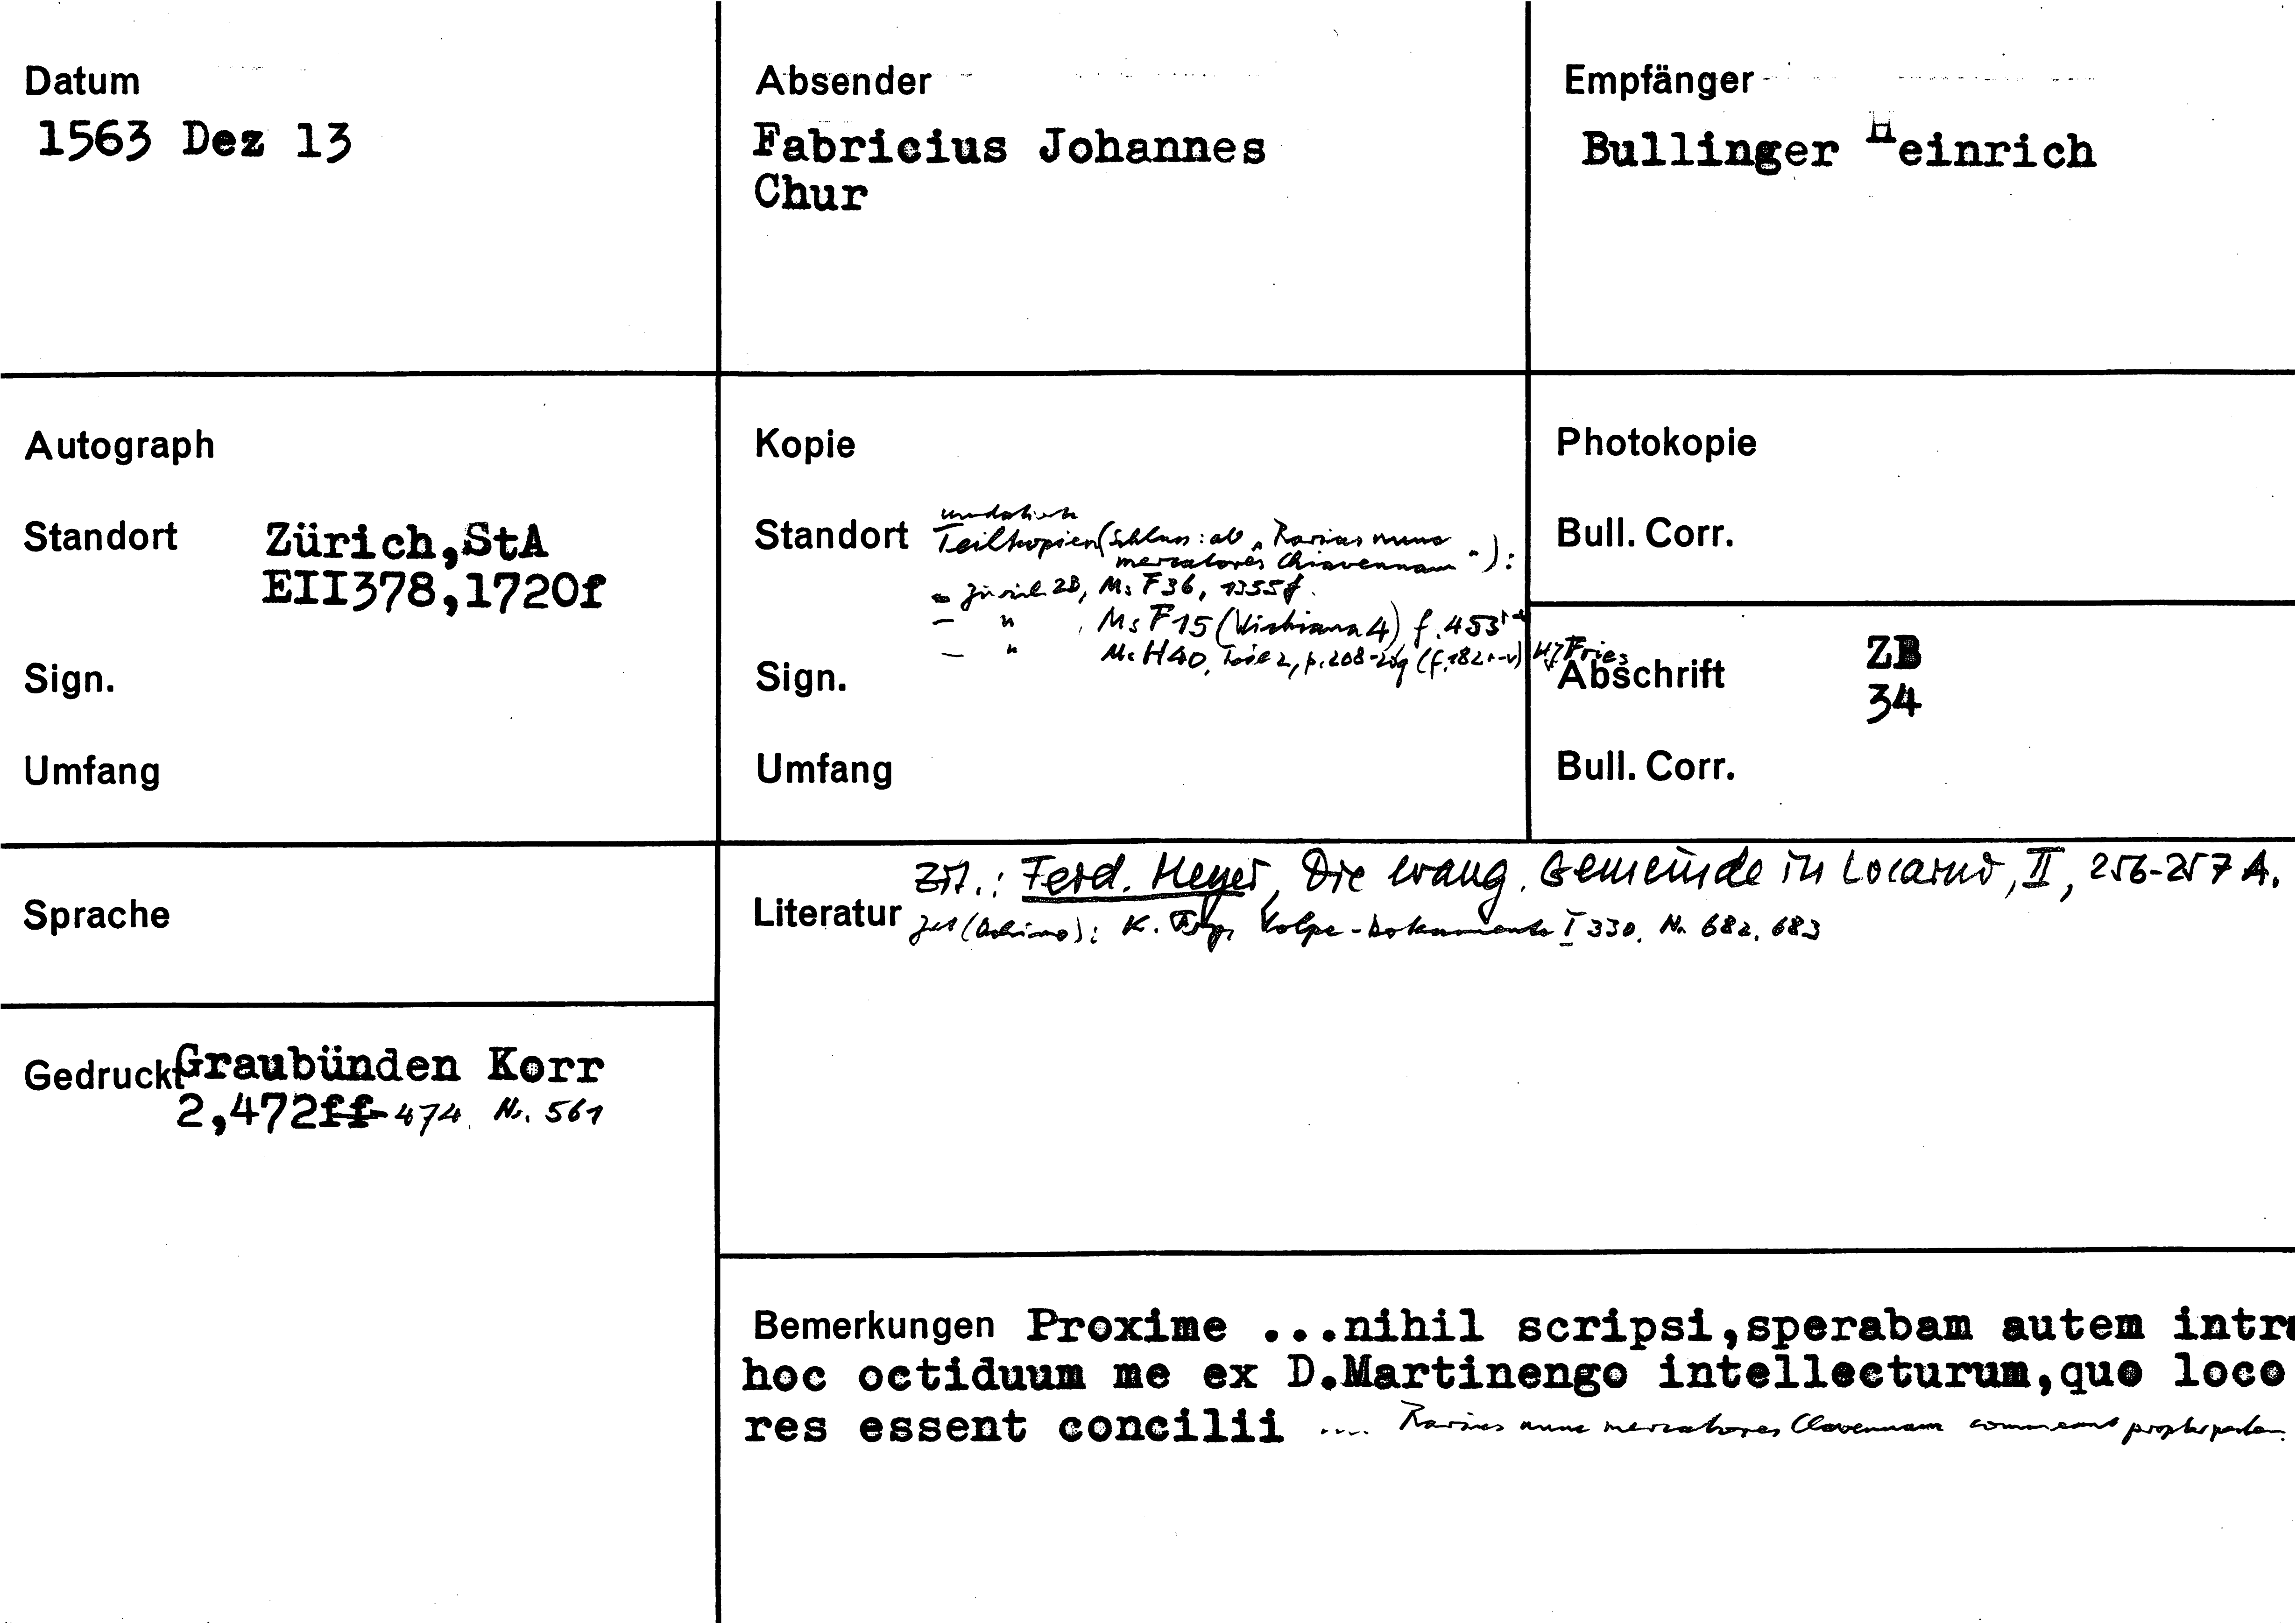 Datum
1563 Dez 13
Absender
Fabricius Johannes
Chur
Empfänger
Bullinger Heinrich
Autograph
Standort Zürich,StA
EII378,1720f
Sign.
Umfang
Kopie
Standort
Teilkopien (Schluss: ab „Rarius nunc
mercatores Chiavennam "):
- Zürich ZB, Ms F 36, 1355f.
- " , Ms F 15 (          4) f. 453
- " Ms H 40,      2, p. 208-209 (f. 182r-v) Fries
Sign.
Umfang
Photokopie
Bull. Corr.
Abschrift ZB
34
Bull. Corr.
Sprache
Zit.: Ferd. Meyer, Die evang. Gemeinde in Locarno, II, 256-257 A.
Literatur           K.      Volpe-Dokumente I 330, Nr. 682, 683
Gedruckt Graubünden Korr
2,472ff-474. Nr. 561
Bemerkungen Proxime ...nihil scripsi,sperabam autem intr
hoc octiduum me ex D.Martinengo intellecturum,quo loco
res essent concilii .... Rarius nunc mercatores Clavennam commeant propter pestem.